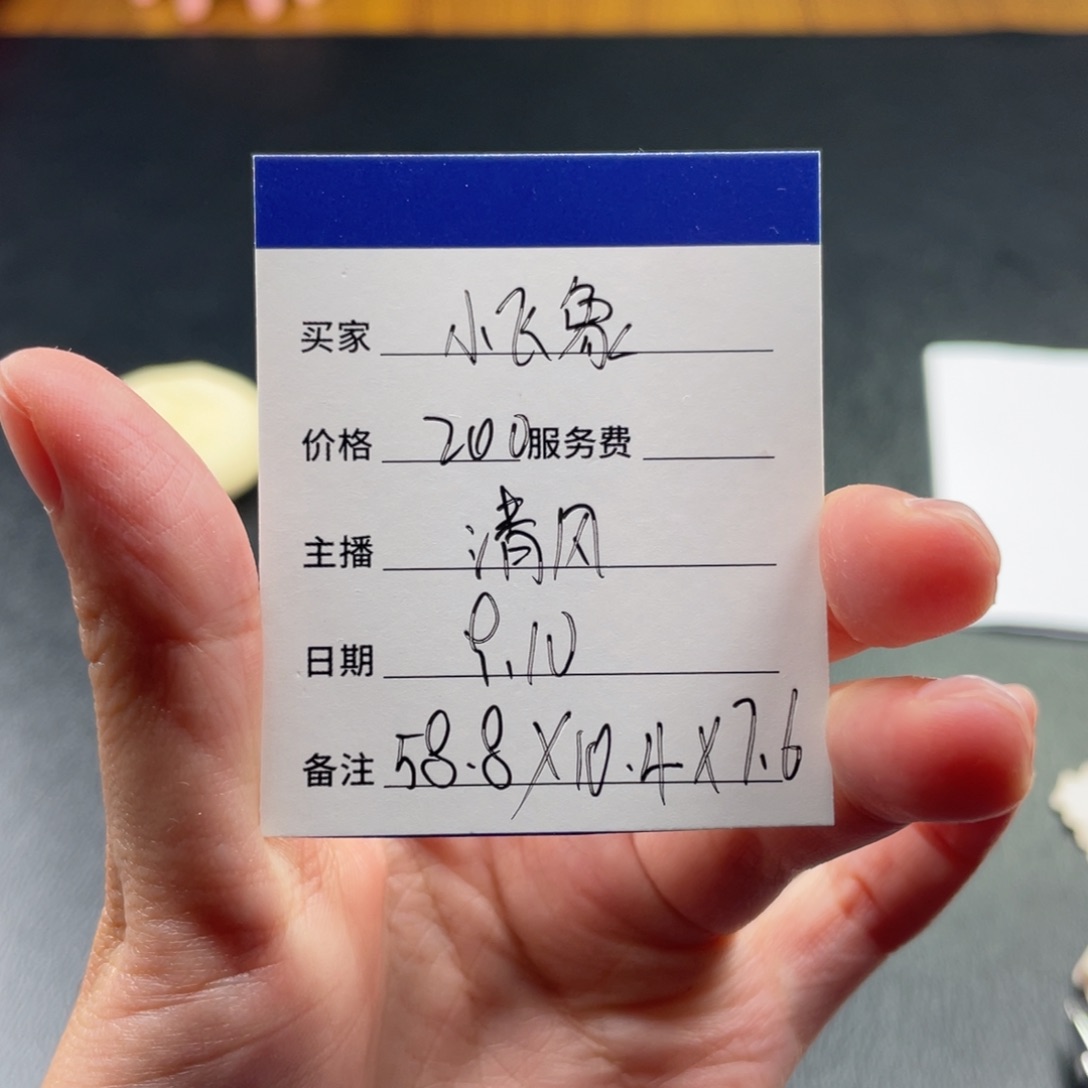 买家 小飞象
价格 200 服务费
主播 清风
日期 9.10
备注 58.8X10.4X7.6